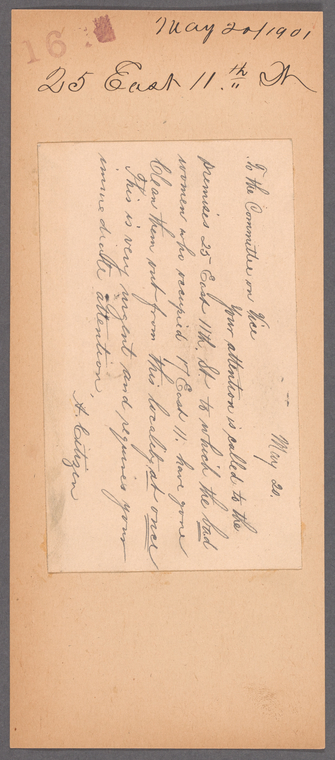 16
May 20/1901
25 East 11.th St
May 20.
To the Committee on Vice
Your attention is called to the
premises 25 East 11th. St to which the bad
women who occupied 17 East 11. have gone
Clean them out from this locality at once
This is very urgent and requires your
immediate attention,
A. Citizen